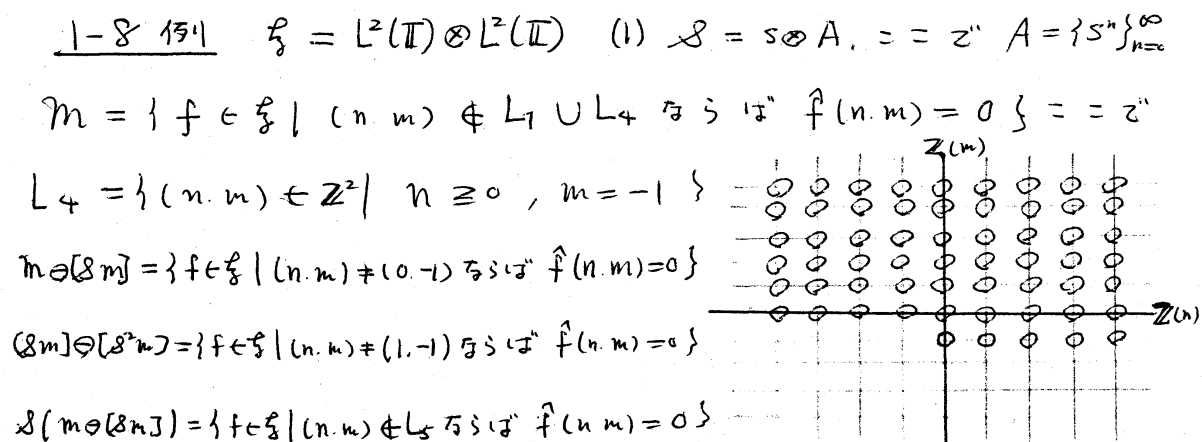 1-8 例 ξ = L²(𝕋)⊗L²(𝕋) (1) 𝒮 = S⊗A. ここで A = {Sⁿ}_{n=0}^∞
m = {f ∈ ξ | (n.m) ∉ L₁ ∪ L₄ ならば f̂(n.m) = 0} ここで
L₄ = {(n.m) ∈ ℤ² | n ≥ 0, m = -1}
m⊖[𝒮m] = {f∈ξ | (n.m) ≠ (0.-1) ならば f̂(n.m)=0}
[𝒮m]⊖[𝒮²m] = {f∈ξ | (n.m) ≠ (1.-1) ならば f̂(n.m)=0}
𝒮(m⊖[𝒮m]) = {f∈ξ | (n m) ∉ L₅ ならば f̂(n m) = 0}
ℤ(m)
ℤ(n)